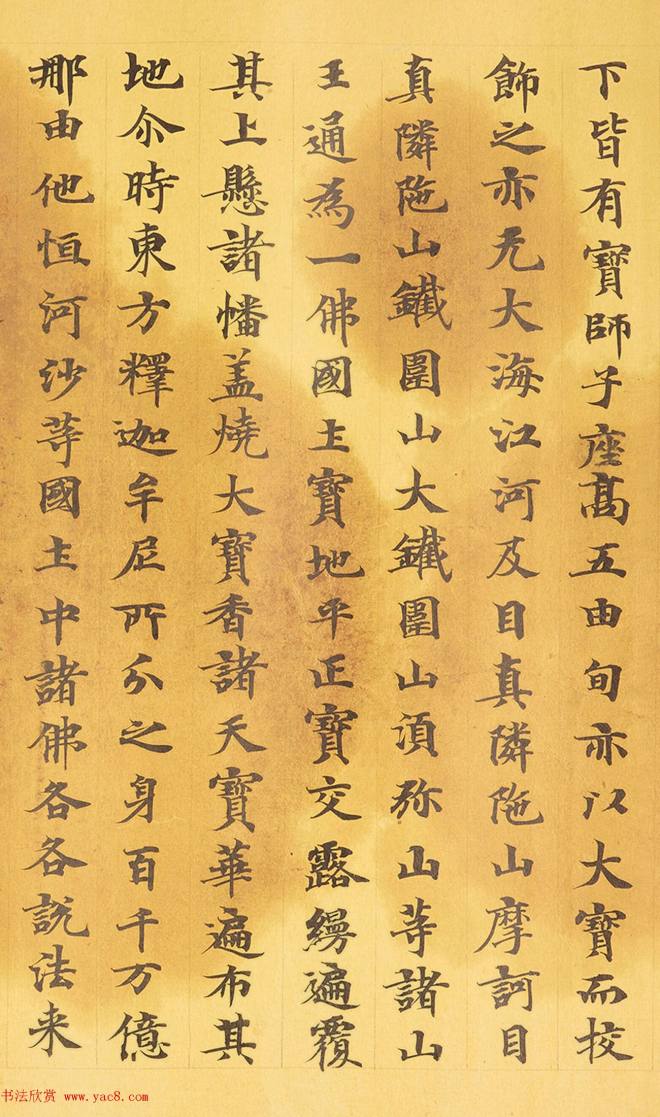 下皆有寶師子座髙五由旬亦以大寶而挍
飾之亦无大海江河及目真隣陁山摩訶目
真隣陁山鐵圍山大鐵圍山湏弥山等諸山
王通為一佛國土寶地平正寶交露縵遍覆
其上懸諸幡盖燒大寶香諸天寶華遍布其
地尒時東方釋迦牟尼所分之身百千万億
那由他恒河沙等國土中諸佛各各說法来
书法欣赏 www.yac8.com